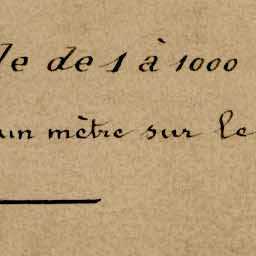 le de 1 à 1000
un mètre sur le